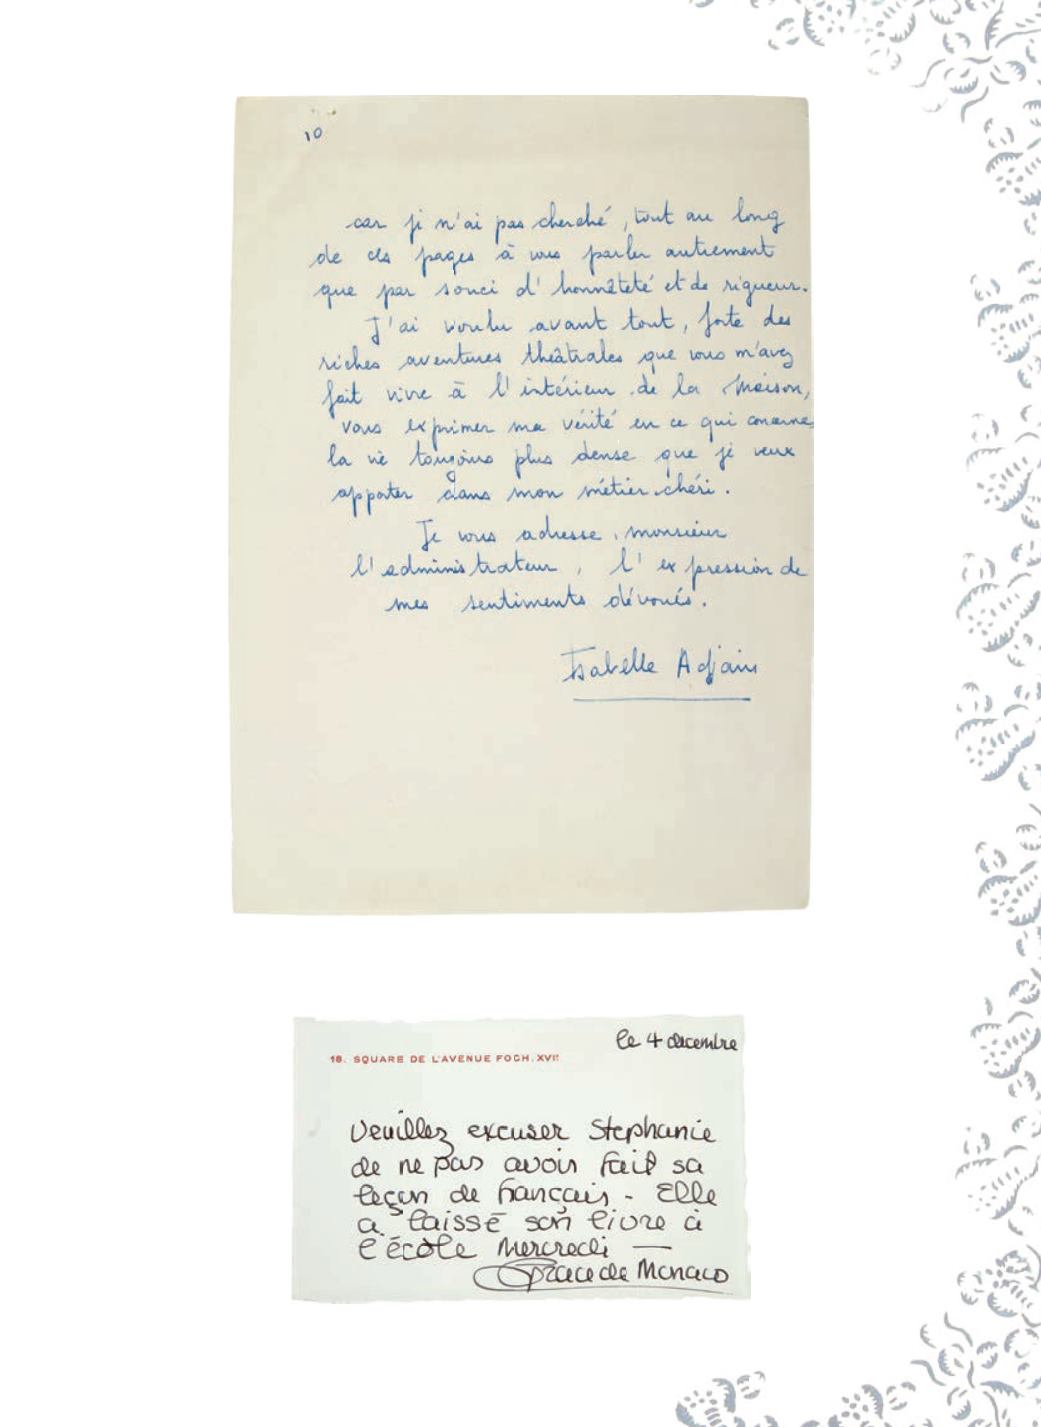 10
car je n'ai pas cherché, tout au long
de ces pages à vous parler autrement
que par souci d'honnêteté et de rigueur.
J'ai voulu avant tout, forte des
riches aventures théâtrales que vous m'avez
fait vivre à l'intérieur de la Maison,
vous exprimer ma vérité en ce qui concerne
la vie toujours plus dense que je veux
apporter dans mon métier chéri.
Je vous adresse, monsieur
l'administrateur, l'expression de
mes sentiments dévoués.
Isabelle Adjani
le 4 decembre
18. SQUARE DE L'AVENUE FOCH. XVIE
Veuillez excuser Stephanie
de ne pas avoir fait sa
leçon de français - Elle
a laissé son livre à
l'école Mercredi —
Grace de Monaco